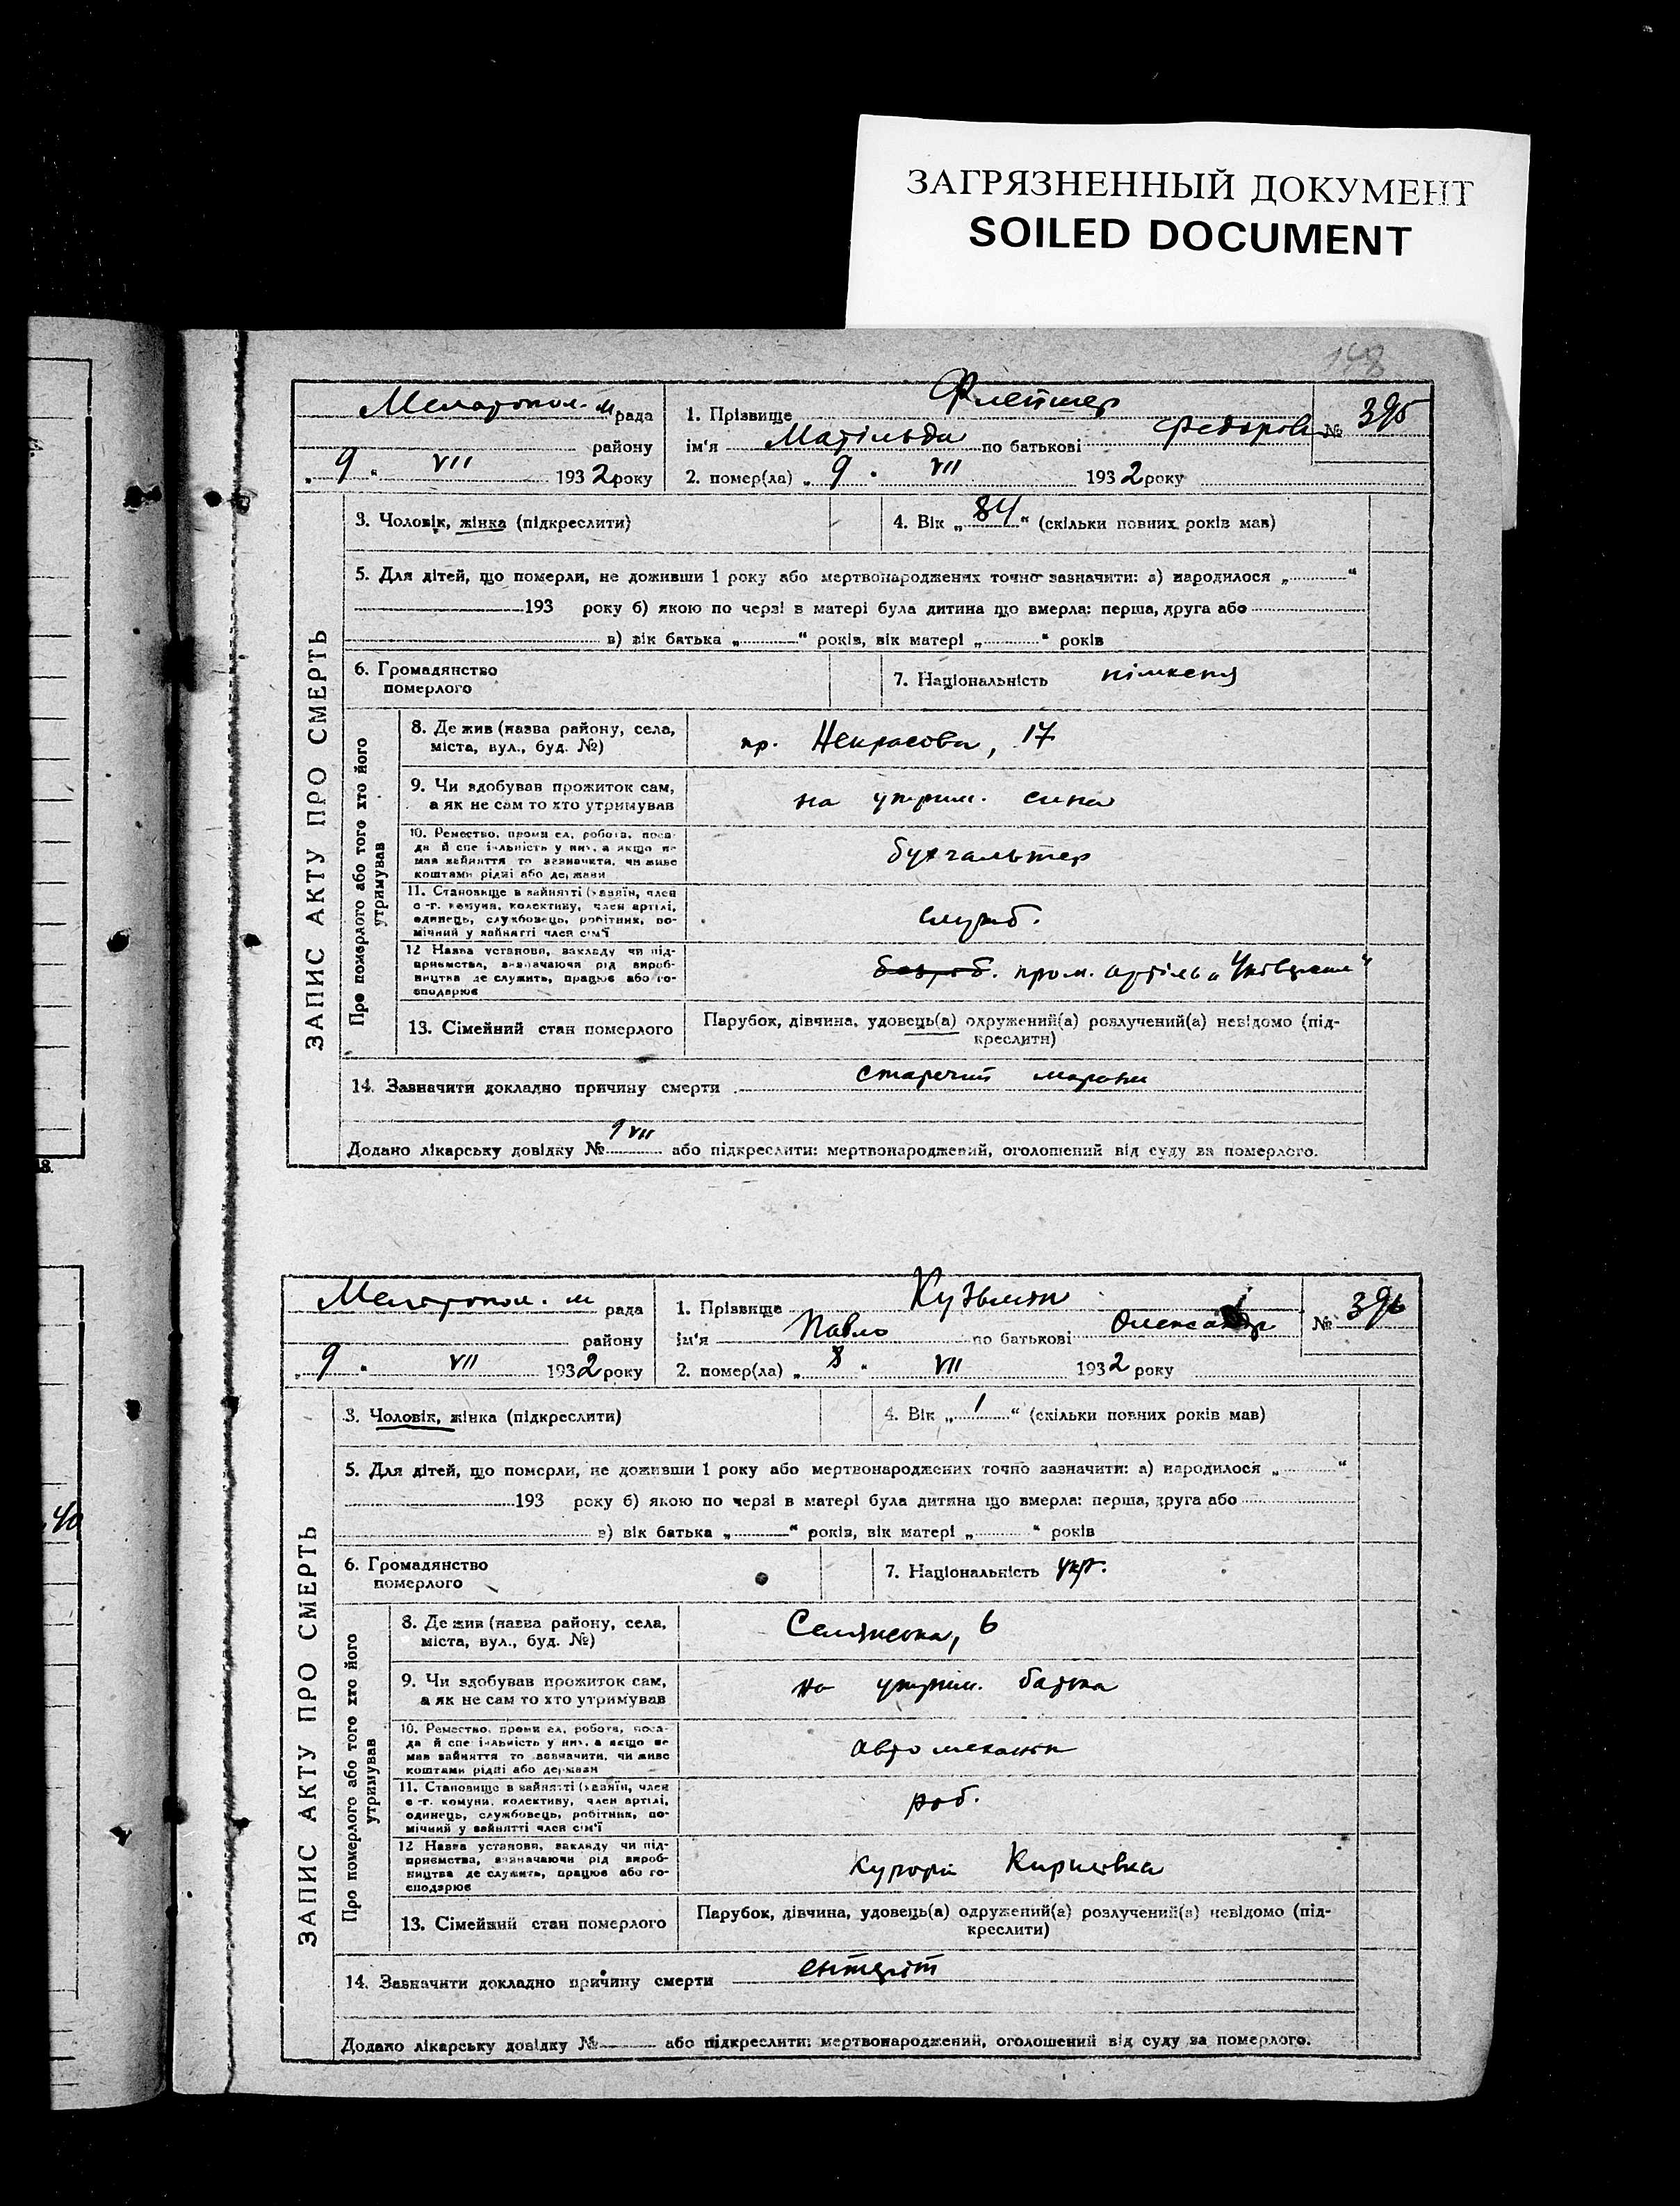 ЗАГРЯЗНЕННЫЙ ДОКУМЕНТ
SOILED DOCUMENT
148
ЗАПИС АКТУ ПРО СМЕРТЬ
Мелітопол. м рада
району
„ 9 “ VII 1932 року
1. Прізвище Флейшер
ім'я Матільда по батькові Федоров № 395
2. помер(ла) „ 9 “ VII 1932 року
3. Чоловік, жінка (підкреслити)
4. Вік „ 84 “ (скільки повних років мав)
5. Для дітей, що померли, не доживши 1 року або мертвонароджених точно зазначити: а) народилося „ “
193 року б) якою по черзі в матері була дитина що вмерла: перша, друга або
в) вік батька „ “ років, вік матері „ “ років
6. Громадянство
померлого
7. Національність німкеня
Про померлого або того хто його
утримував
8. Де жив (назва району, села,
міста, вул., буд. №)
пр. Некрасова, 17
9. Чи здобував прожиток сам,
а як не сам то хто утримував
на утрим. сина
10. Ремество, промисел, робота, поса-
да й спеціяльність у них, а якщо не
мав зайняття то зазначити, чи живе
коштами рідні або держави
бухгальтер
11. Становище в зайнятті (хазяїн, член
с-г. комуни, колективу, член артілі,
одинець, службовець, робітник, по-
мічний у зайнятті член сім'ї
служб.
12 Назва установи, закладу чи під-
приємства, зазначаючи рід вироб-
ництва де служить, працює або го-
сподарює
пром. артіль
13. Сімейний стан померлого
Парубок, дівчина, удовець(а) одружений(а) розлучений(а) невідомо (під-
креслити)
14. Зазначити докладно причину смерти старечий маразм
Додано лікарську довідку № 9 VII або підкреслити: мертвонароджений, оголошений від суду за померлого.
8.
ЗАПИС АКТУ ПРО СМЕРТЬ
Мелітопол. м рада
району
„ 9 “ VII 1932 року
1. Прізвище Кузьмин
ім'я Павло по батькові Олександр № 396
2. помер(ла) „ 8 “ VII 1932 року
3. Чоловік, жінка (підкреслити)
4. Вік „ 1 “ (скільки повних років мав)
5. Для дітей, що померли, не доживши 1 року або мертвонароджених точно зазначити: а) народилося „ “
193 року б) якою по черзі в матері була дитина що вмерла: перша, друга або
в) вік батька „ “ років, вік матері „ “ років
40
6. Громадянство
померлого
7. Національність укр.
Про померлого або того хто його
утримував
8. Де жив (назва району, села,
міста, вул., буд. №)
Селянська, 6
9. Чи здобував прожиток сам,
а як не сам то хто утримував
на утрим. батька
10. Ремество, промисел, робота, поса-
да й спеціяльність у них, а якщо не
мав зайняття то зазначити, чи живе
коштами рідні або держави
автомеханік
11. Становище в зайнятті (хазяїн, член
с-г. комуни, колективу, член артілі,
одинець, службовець, робітник, по-
мічний у зайнятті член сім'ї
роб.
12 Назва установи, закладу чи під-
приємства, зазначаючи рід вироб-
ництва де служить, працює або го-
сподарює
Курорт Кирилівка
13. Сімейний стан померлого
Парубок, дівчина, удовець(а) одружений(а) розлучений(а) невідомо (під-
креслити)
14. Зазначити докладно причину смерти ентеріт
Додано лікарську довідку № або підкреслити: мертвонароджений, оголошений від суду за померлого.